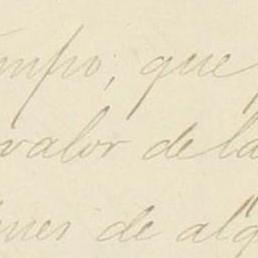 empo, que
valor de la
de alg